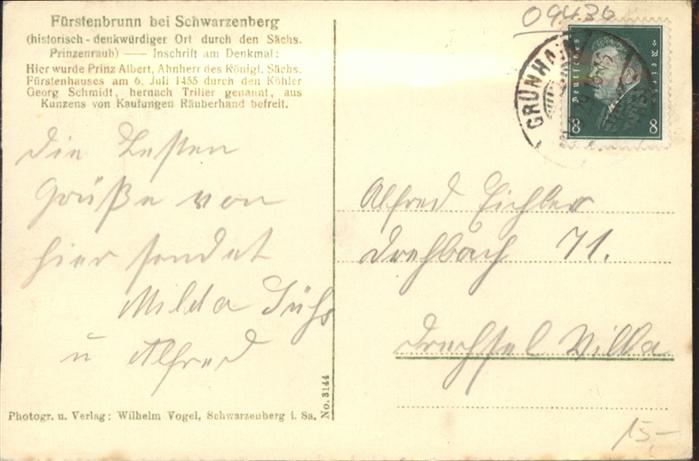 Fürstenbrunn bei Schwarzenberg
(historisch-denkwürdiger Ort durch den Sächs.
Prinzenraub) — Inschrift am Denkmal:
Hier wurde Prinz Albert, Ahnherr des Königl. Sächs.
Fürstenhauses am 6. Juli 1455 durch den Köhler
Georg Schmidt, hernach Triller genannt, aus
Kunzens von Kaufungen Räuberhand befreit.
Die besten
Grüße von
hier sendet
Milda
u Alfred
Photogr. u. Verlag: Wilhelm Vogel, Schwarzenberg i. Sa.
No. 3144
09436
GRÜNHAIN
Deutsches Reich
8 8
Alfred Eichler
Drehbach 71.
Drechsel Villa
15,-